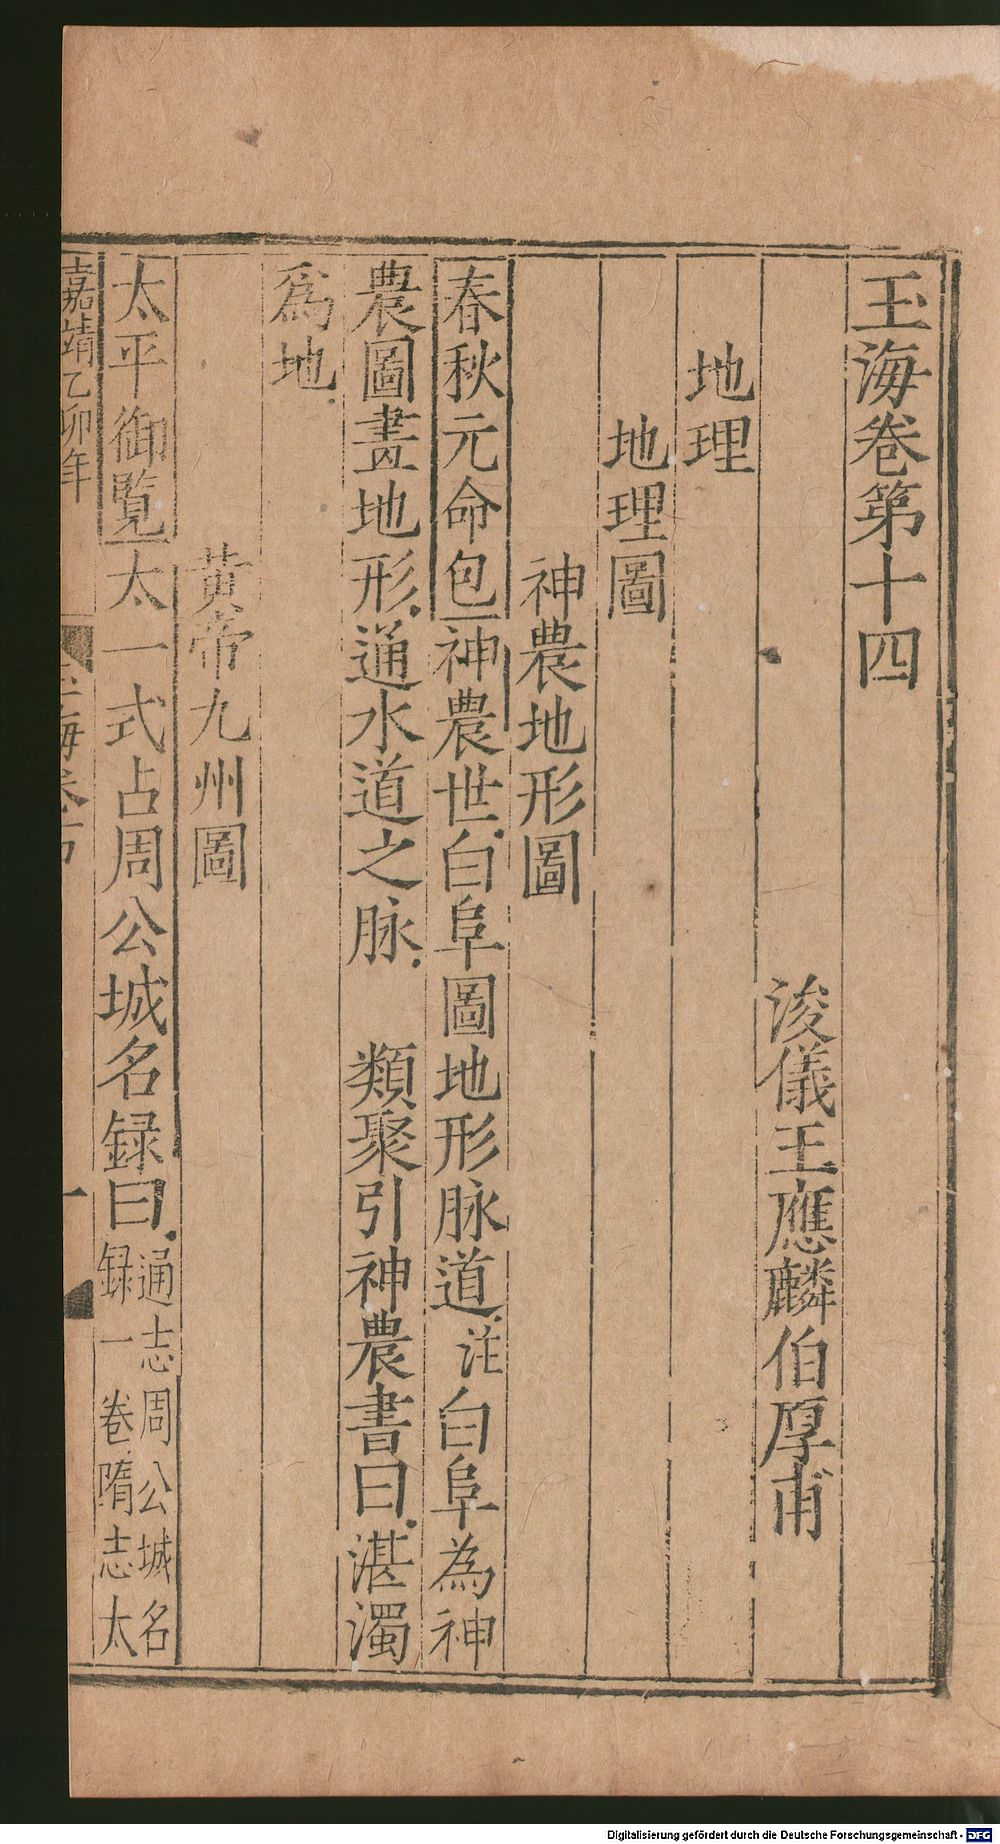 玉海卷第十四
浚儀王應麟伯厚甫
地理
地理圖
神農地形圖
春秋元命包神農世白阜圖地形脉道注白阜為神
農圖畫地形通水道之脉 類聚引神農書曰湛濁
爲地
黄帝九州圖
太平御覧太一式占周公城名録曰通志周公城名
録一卷隋志太
嘉靖乙卯年
海
一
Digitalisierung gefördert durch die Deutsche Forschungsgemeinschaft - DFG